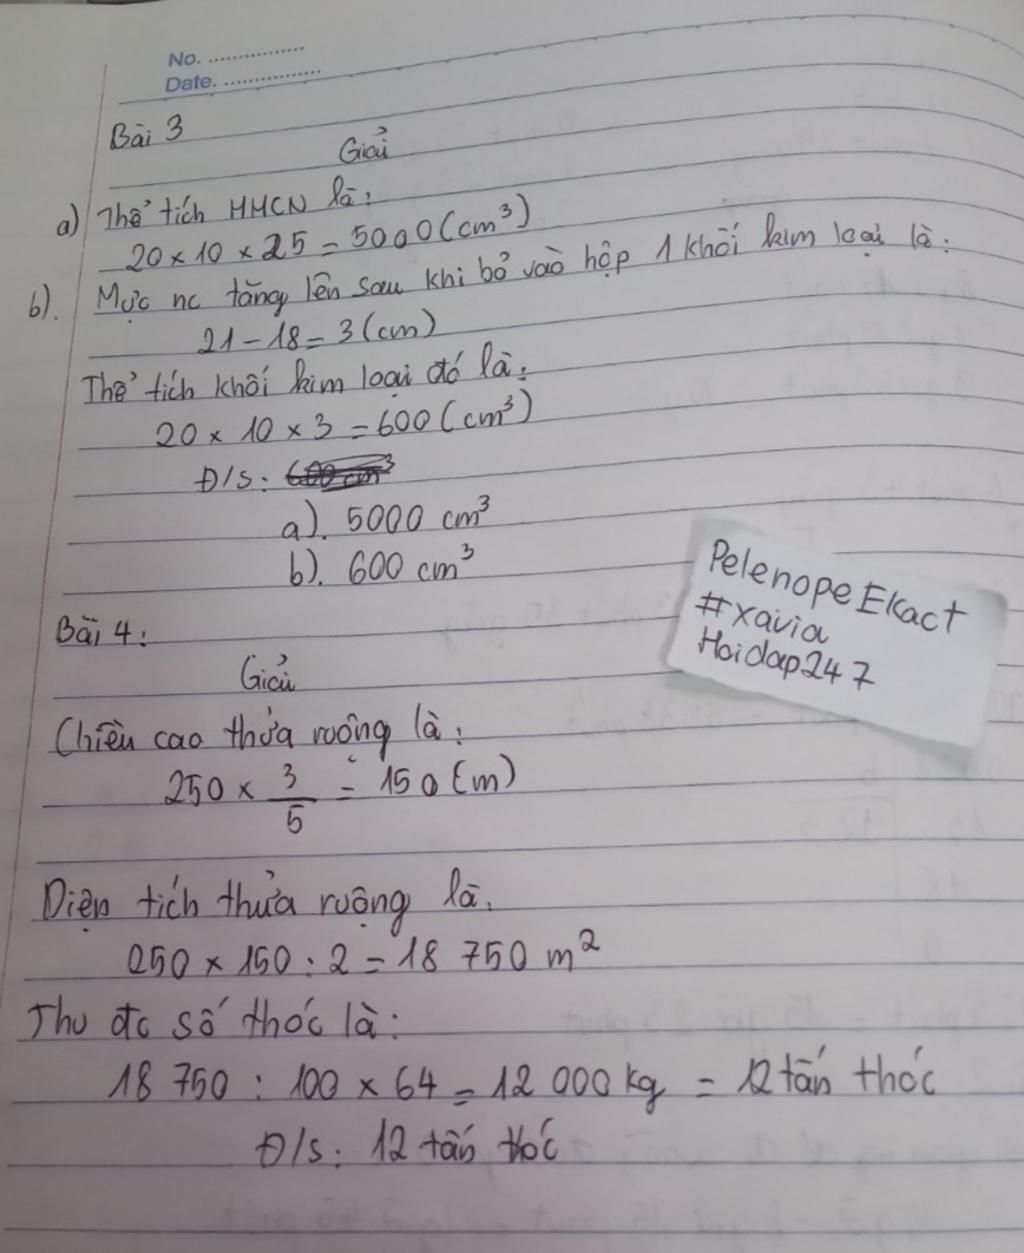 No. ................
Date. ................
Bài 3
Giải
a) Thể tích HHCN là:
20 × 10 × 25 = 5000 (cm³)
b). Mực nc tăng lên sau khi bỏ vào hộp 1 khối kim loại là:
21 - 18 = 3 (cm)
Thể tích khối kim loại đó là:
20 × 10 × 3 = 600 (cm³)
Đ/S: 600 cm³
a). 5000 cm³
b). 600 cm³
Pelenope Ekact
#xavia
Hoidap247
Bài 4:
Giải
Chiều cao thửa ruộng là:
250 × 3/5 = 150 (m)
Diện tích thửa ruộng là.
250 × 150 : 2 = 18 750 m²
Thu đc số thóc là:
18 750 : 100 × 64 = 12 000 kg = 12 tấn thóc
Đ/S: 12 tấn thóc